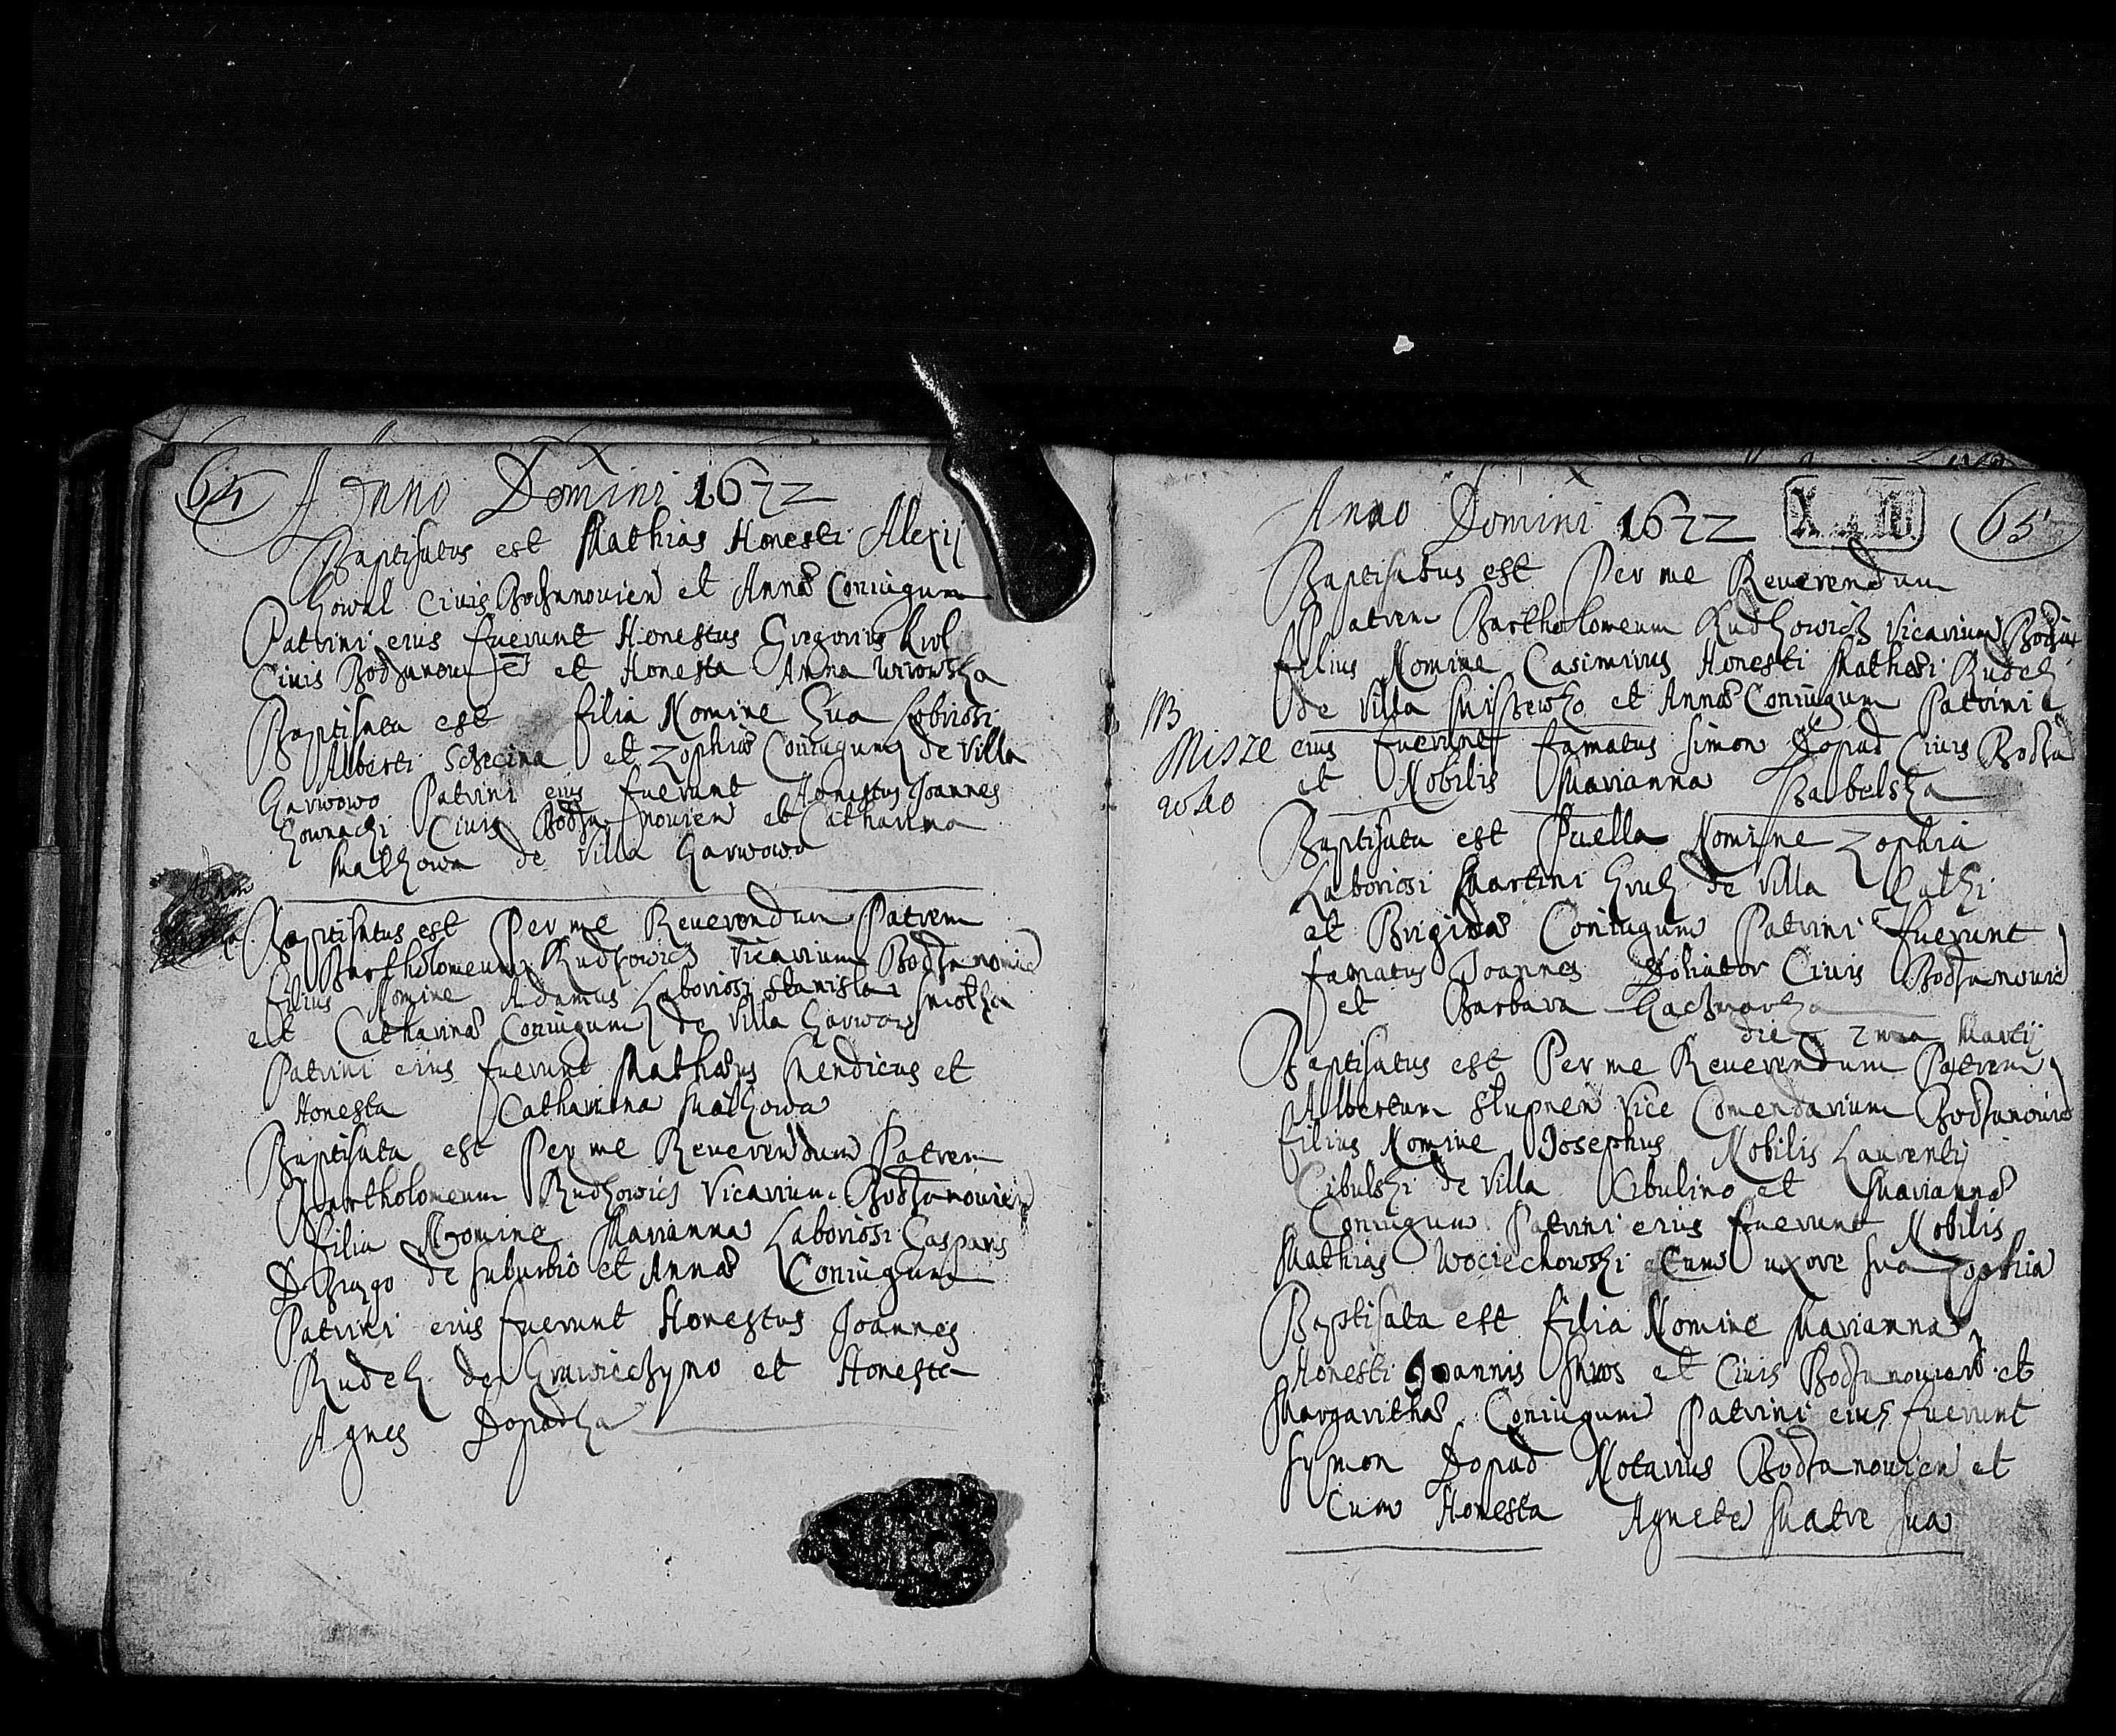 64
Anno Domini 1672
Baptisatus est Mathias Honesti Alexij
Kowal Ciuis Bodzanouien et Annæ Coniugum
Patrini eius fuerunt Honestus Gregorius Krol
Ciuis et Honesta Anna
Baptisata est filia Nomine Eua Laboriosi
Alberti et Zophiæ Coniugum de Villa
Garwowo Patrini eius fuerunt Honestus Joannes
Ciuis Bodzanouien et Catharina
de Villa Garwowo
Baptisatus est Per me Reuerendum Patrem
Bartholomeum Rudkowicz Vicarium Bodzanouien
filius Nomine Adamus Laboriosi Stanislai
et Catharinæ Coniugum de Villa
Patrini eius fuerunt Mathæus Mendicus et
Honesta Catharina
Baptisata est Per me Reuerendum Patrem
Bartholomeum Rudkowicz Vicarium Bodzanouien
filia Nomine Marianna Laboriosi Casparis
de suburbio et Annæ Coniugum
Patrini eius fuerunt Honestus Joannes
Rudek de et Honesta
Agnes Dopadka
Anno Domini 1672
65
Baptisatus est Per me Reuerendum
Patrem Bartholomeum Rudkowicz Vicarium
filius Nomine Casimirus Honesti Mathæi Rudek
de Villa Miszewko et Annæ Coniugum Patrini
NB
eius fuerunt famatus Simon Dopad Ciuis
Misze
et Nobilis Marianna
wko
Baptisata est Puella Nomine Zophia
Laboriosi Martini de Villa
et Brigidæ Coniugum Patrini fuerunt
famatus Joannes Doliator Ciuis Bodzanouien
et Barbara
die Martij
Baptisatus est Per me Reuerendum Patrem
Albertum Vice Comendarium Bodzanouien
filius Nomine Josephus Nobilis Laurentij
Cibulski de Villa Cibulino et Mariannæ
Coniugum Patrini eius fuerunt Nobilis
Mathias Wociechowski Cum uxore sua Zophia
Baptisata est filia Nomine Marianna
Honesti Joannis et Ciuis Bodzanouien et
Margarithæ Coniugum Patrini eius fuerunt
Symon Dopad Notarius Bodzanouien et
Cum Honesta Agnete Matre sua